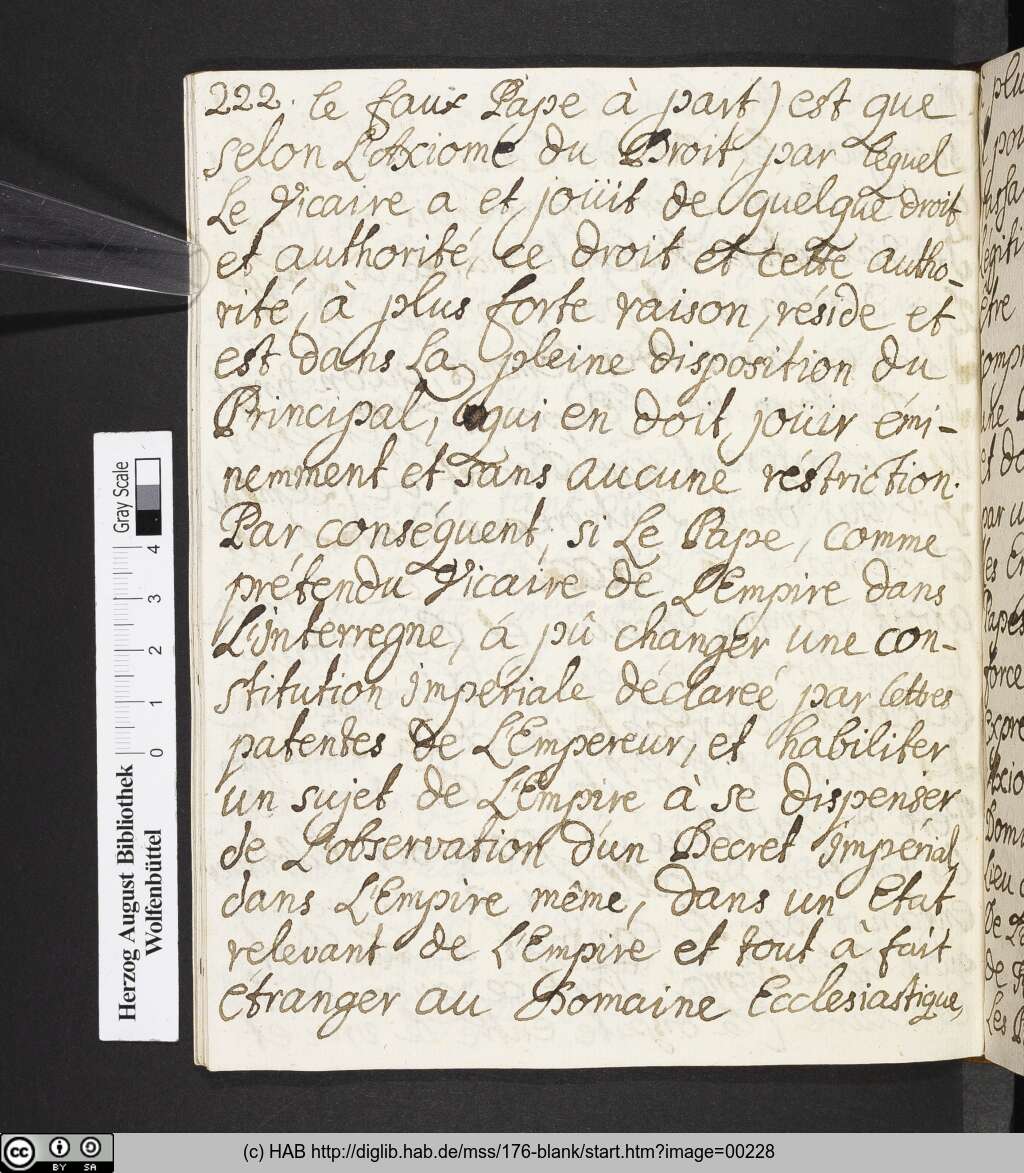 222. le faux Pape à part) est que
selon L'Axiome du Droit, par lequel
Le Vicaire a et joüit de quelque droit
et authorité, ce droit et cette autho-
rité, à plus forte raison, réside et
est dans La pleine disposition du
Principal, qui en doit joüir émi-
nemment et sans aucune réstriction.
Par conséquent, si Le Pape, comme
prétendu Vicaire de L'Empire dans
L'Interregne, á pû changer une con-
stitution Imperiale déclareé par lettres
patentes de L'Empereur, et habiliter
un sujet de L'Empire à se dispenser
de L'observation d'un Decret Impérial,
dans L'Empire même, dans un Etat
relevant de L'Empire et tout à fait
étranger au Domaine Ecclesiastique,
Gray Scale
4 3 2 1 0
Herzog August Bibliothek
Wolfenbüttel
plu
pou
être
comp
par u
Papes
force
expre
Axio
Doma
Lieu
de
Les
cc BY SA
(c) HAB http://diglib.hab.de/mss/176-blank/start.htm?image=00228